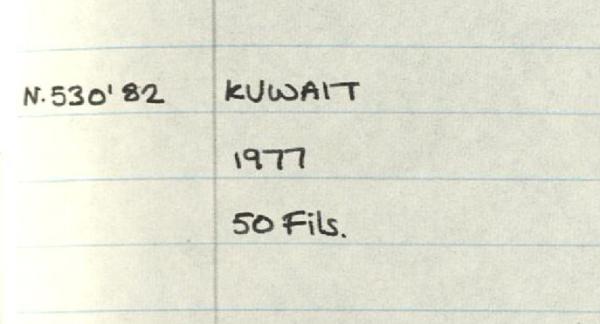 N.530'82 KUWAIT
1977
50 Fils.